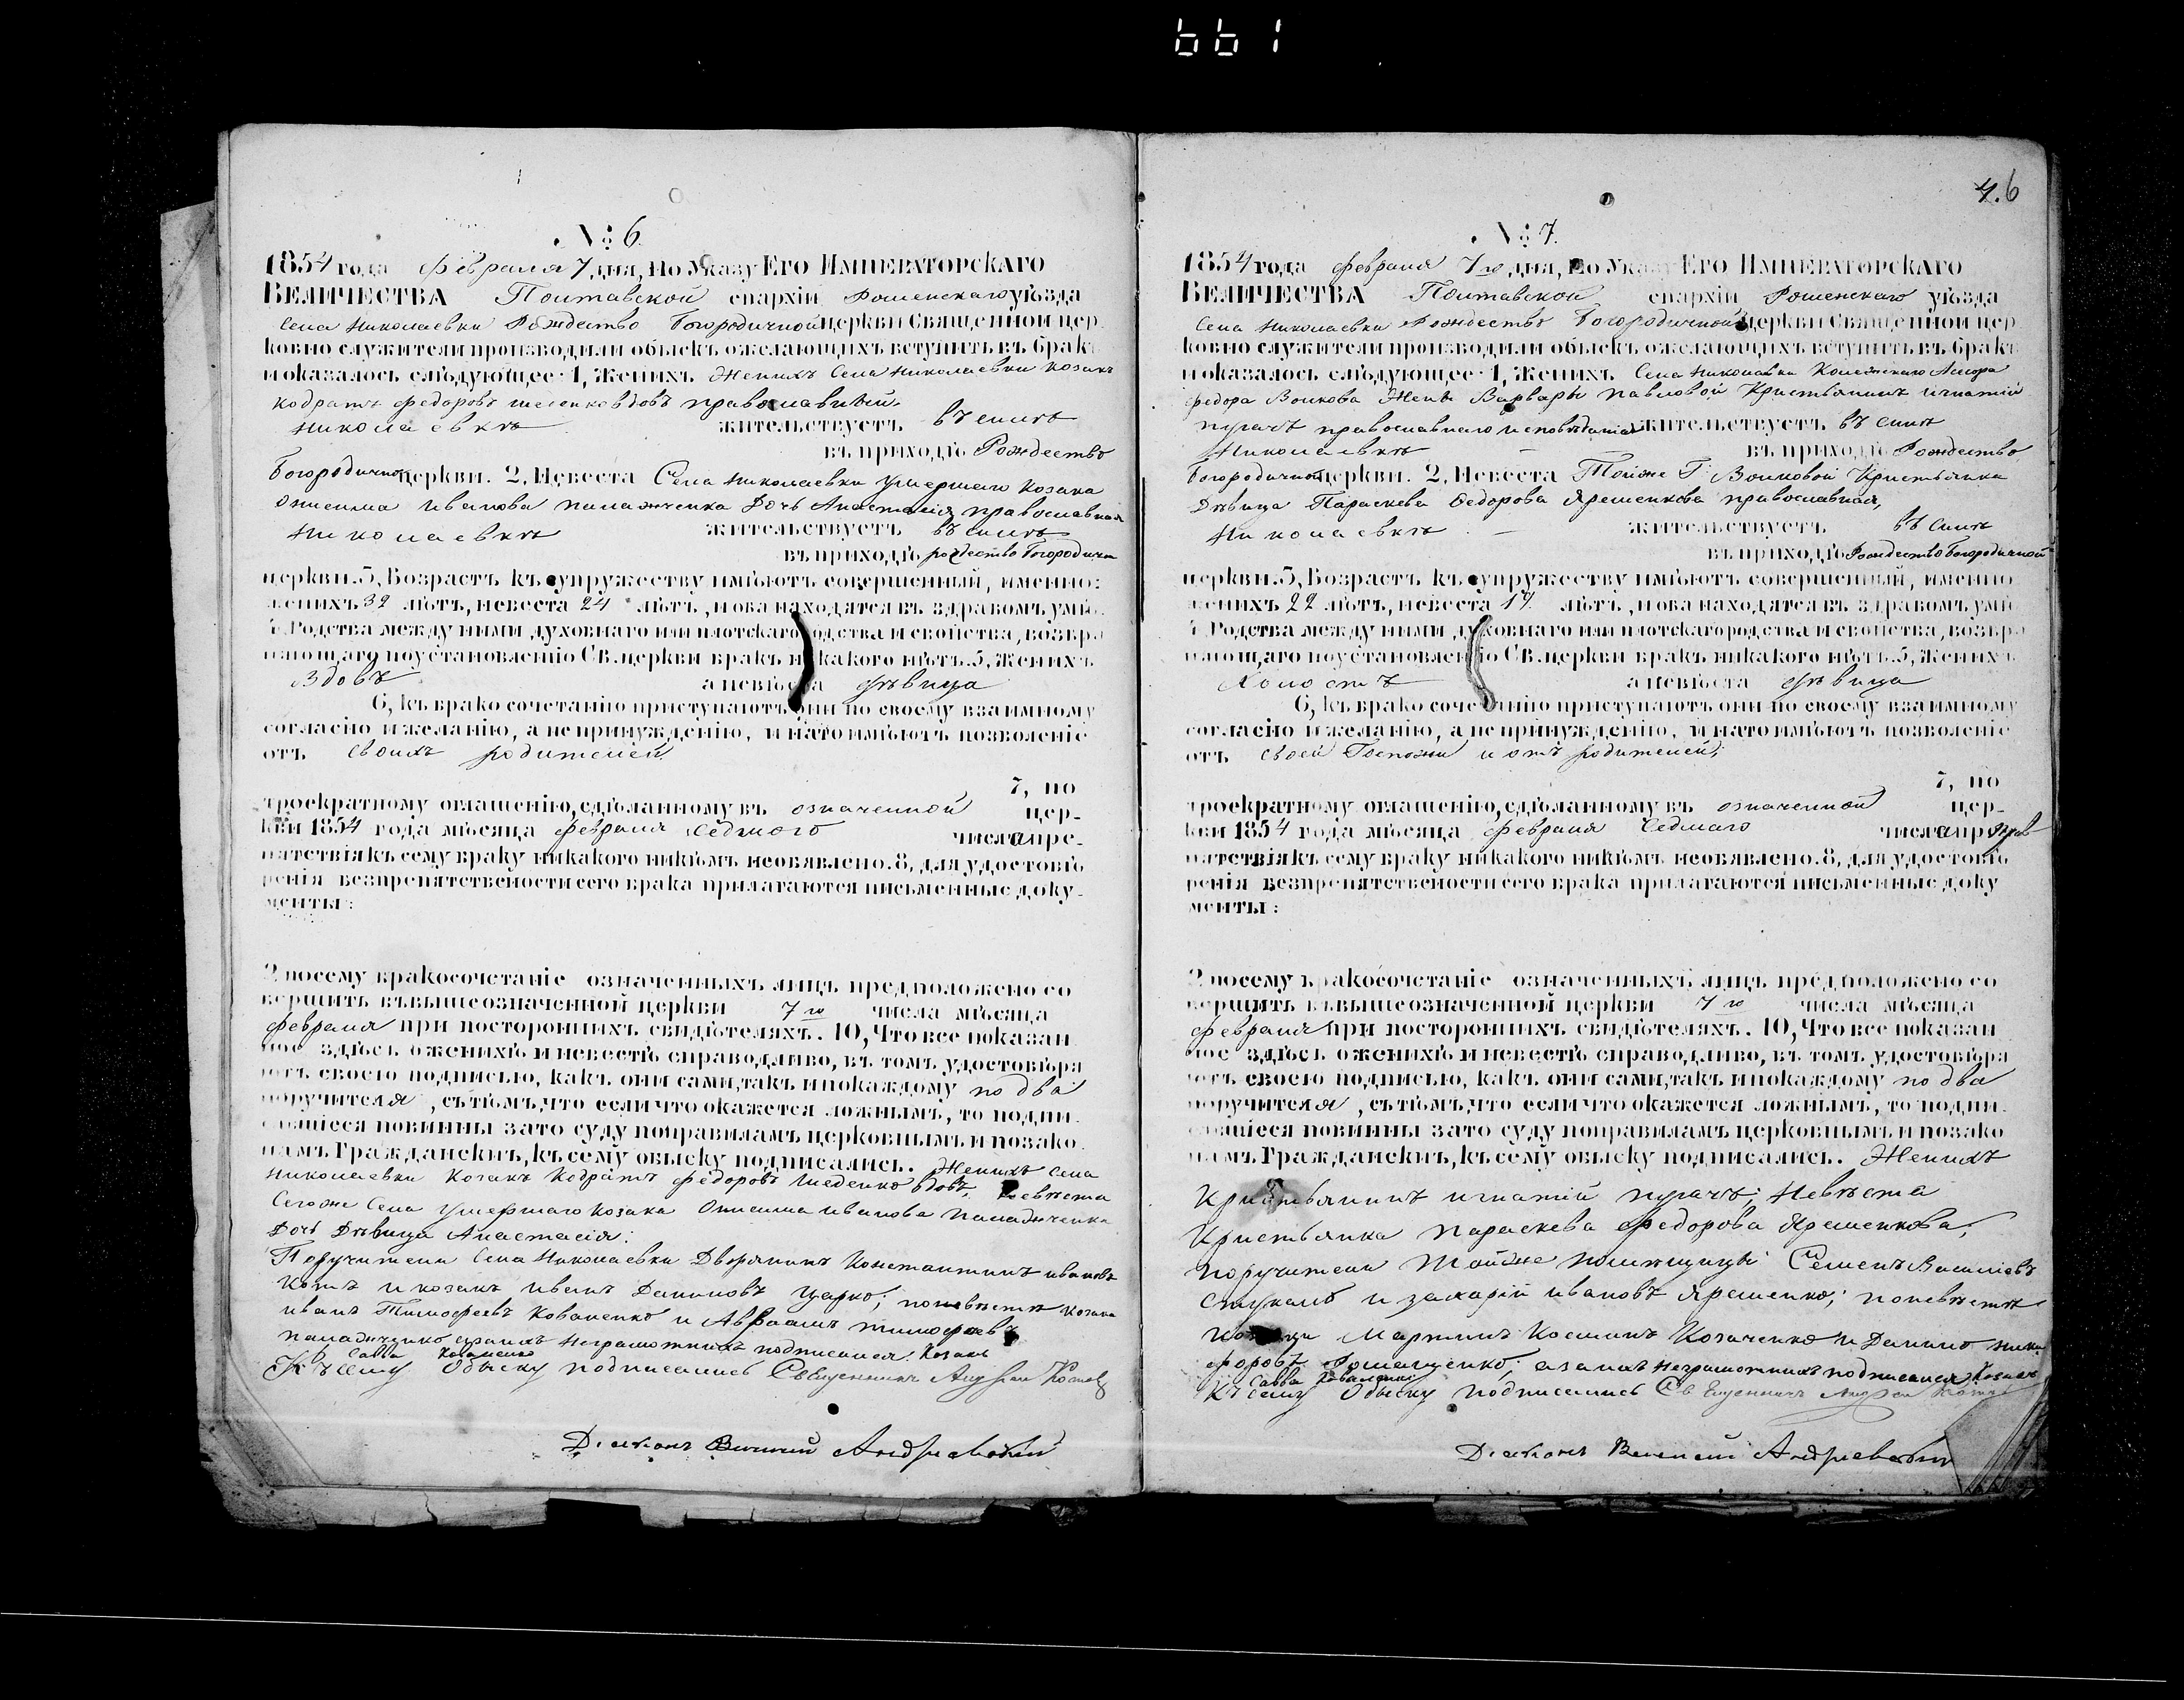 661
№ 6.
1854 года февраля 7 дня, по Указу Его Императорскаго
Величества Полтавской епархіи Роменскаго уѣзда
Села Николаевки Рождество Богородичной церкви Священной цер
ковно служители производили обыскъ ожелающихъ вступить въ бракъ
и оказалось слѣдующее: 1, Женихъ Женихъ Села Николаевки козакъ
Кодратъ федоровъ вдовъ православный
Николаевкѣ жительствуетъ въ селѣ
въ приходѣ Рождество
Богородичной церкви. 2, Невеста Села Николаевки умершаго козака
Онисима иванова дочь Анастасія православная
Николаевкѣ жительствуетъ въ селѣ
въ приходѣ рождество Богородичн
церкви. 3, Возрастъ къ супружеству имѣютъ совершенный, именно:
женихъ 32 лѣтъ, невеста 24 лѣтъ, и оба находятся въ здравомъ умѣ.
4 Родства между ними духовнаго или плотскаго родства и свойства, возбра
няющаго поустановленію Св. церкви бракъ никакого нѣтъ. 5, Женихъ
Вдовъ а невѣста дѣвица
6, къ брако сочетанію приступаютъ они по своему взаимному
согласію и желанію, а не принужденію, и на то имѣютъ позволеніе
отъ своихъ родителей.
7, по
троекратному оглашенію, сдѣланному въ означенной цер-
кви 1854 года мѣсяца февраля седмого числа пре-
пятствія къ сему браку никакого никѣмъ необявлено. 8, для удостовѣ
ренія безпрепятствености сего брака прилагаются письменные доку-
менты:
9 посему бракосочетаніе означенныхъ лицъ предположено со
вершить въ вышеозначенной церкви 7го числа мѣсяца
февраля при постороннихъ свидѣтеляхъ. 10, Что все показан
ное здѣсь о женихѣ и невестѣ справодливо, въ томъ удостовѣря
ютъ своею подписью, какъ они сами, такъ и покаждому по два
поручителя, сътѣмъ, что если что окажется ложнымъ, то подпи
савшіеся повинны зато суду поправиламъ церковнымъ и позако
намъ Граждански, къ сему обыску подписались. Женихъ села
Николаевки Козакъ Кодратъ федоровъ вдовъ; Невѣста
Сегоже Села умершаго козака Онисима иванова
Дочь Дѣвица Анастасія:
Поручители Села Николаевки Дворянинъ Константинъ ивановъ
и козакъ иванъ Даниловъ Царко; по невѣстѣ козаки
иванъ Тимофеевъ Коваленко и Авраамъ тимофеевъ
неграмотныхъ подписался: Козакъ
Савва Коваленко
Къ сему Обыску подписались Священникъ Андрей
Діаконъ Андріевскій
7.6
№ 7.
1854 года февраля 7го дня, по Указу Его Императорскаго
Величества Полтавской епархіи Роменскаго уѣзда
Села Николаевки Рождество Богородичной церкви Священной цер
ковно служители производили обыскъ ожелающихъ вступить въ бракъ
и оказалось слѣдующее: 1, Женихъ Села Николаевки
федора Волкова Жены Варвары Павловой Крестьянинъ игнатій
пугачъ православнаго исповѣданія жительствуетъ въ селѣ
Николаевкѣ въ приходѣ Рождество
Богородичной церкви. 2, Невеста Тойже Г: Волковой Крестьянка
Дѣвица Параскева Федорова Ярешенкова православная,
Николаевкѣ жительствуетъ въ селѣ
въ приходѣ Рождество Богородичной
церкви. 3, Возрастъ къ супружеству имѣютъ совершенный, именно
женихъ 22 лѣтъ, невеста 17 лѣтъ, и оба находятся въ здравомъ умѣ
4 Родства между ними духовнаго или плотскаго родства и свойства, возбра
няющаго поустановленію Св. церкви бракъ никакого нѣтъ. 5, Женихъ
Холостъ а невѣста дѣвица
6, къ брако сочетанію приступаютъ они по своему взаимному
согласію и желанію, а не принужденію, и на то имѣютъ позволеніе
отъ своей Госпожи и отъ родителей;
7, по
троекратному оглашенію, сдѣланному въ означенной цер-
кви 1854 года мѣсяца февраля Седмаго числа
пятствія къ сему браку никакого никѣмъ необявлено. 8, для удостовѣ
ренія безпрепятствености сего брака прилагаются письменные доку
менты:
9 посему бракосочетаніе означенныхъ лицъ предположено со
вершить въ вышеозначенной церкви 7го числа мѣсяца
февраля при постороннихъ свидѣтеляхъ. 10, Что все показан
ное здѣсь о женихѣ и невестѣ справодливо, въ томъ удостовѣря
ютъ своею подписью, какъ они сами, такъ и покаждому по два
поручителя, сътѣмъ, что если что окажется ложнымъ, то подпи
савшіеся повинны зато суду поправиламъ церковнымъ и позако
намъ Граждански, къ сему обыску подписались. Женихъ
Крестьянинъ игнатій пугачъ; Невѣста
Крестьянка параскева федорова Ярешенкова;
поручители Тойже помѣщицы Семенъ Василіевъ
и захарій ивановъ Ярешенко; по невѣстѣ
Мартинъ Косминъ Козаченко и Данило ники
форовъ Ромащенко; а за нихъ неграмотныхъ подписался Козакъ
Савва Коваленко
Къ сему Обыску подписались Священникъ Андрей
Діаконъ Андріевскій